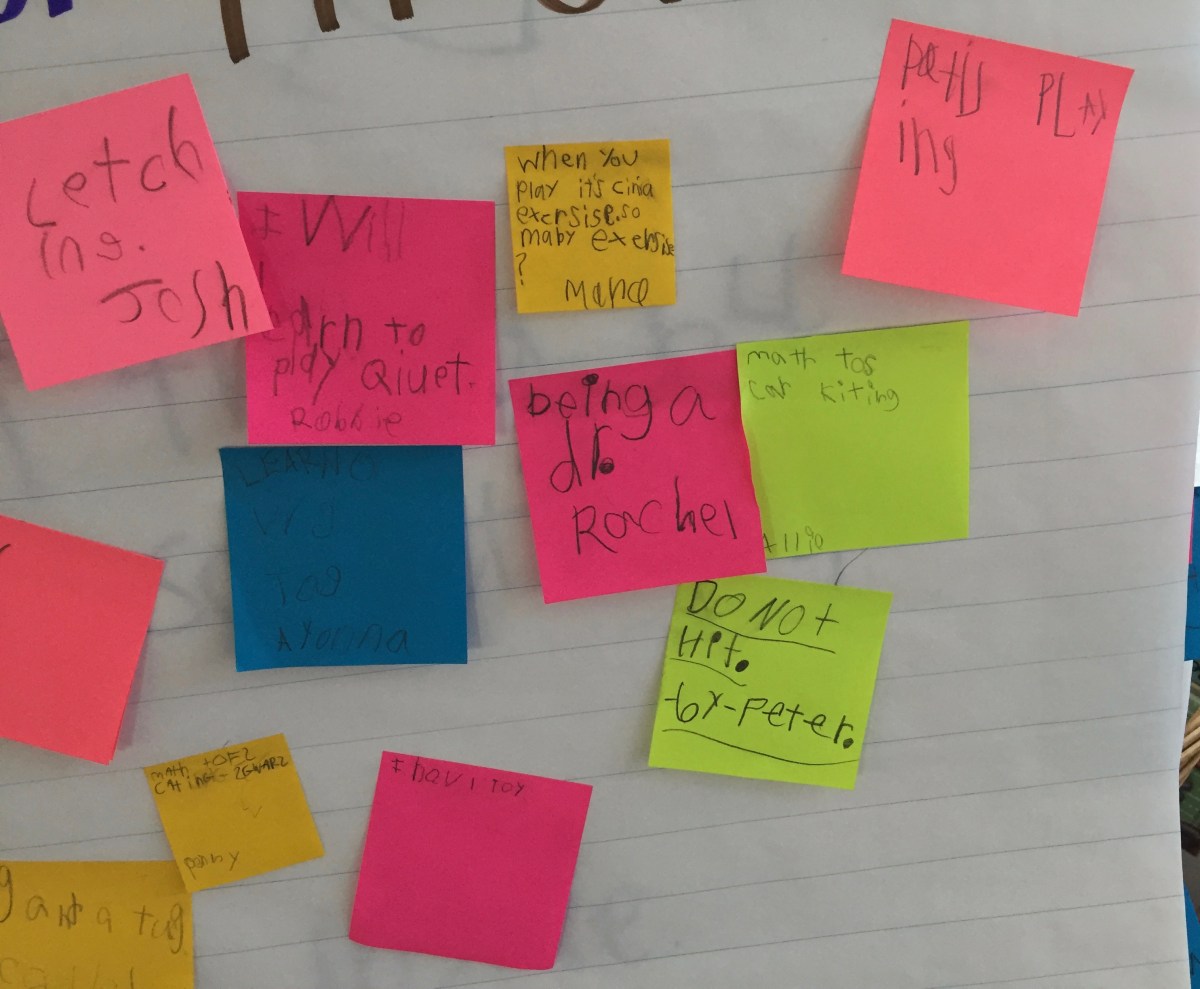 Letch
ing.
Josh
I Will
learn to
play Qiuet.
Robbie
When You
play it's cinia
exersise.so
maby exersise
?
PLAY
ing
being a
dr.
Rachel
math tos
cat kiting
Allie
LEARNO
Tag
AYanna
DO NOt
Hit.
by-Peter.
math tOF2
CAtinG- ZGWARZ
panny
I hav i toy
g and a tug